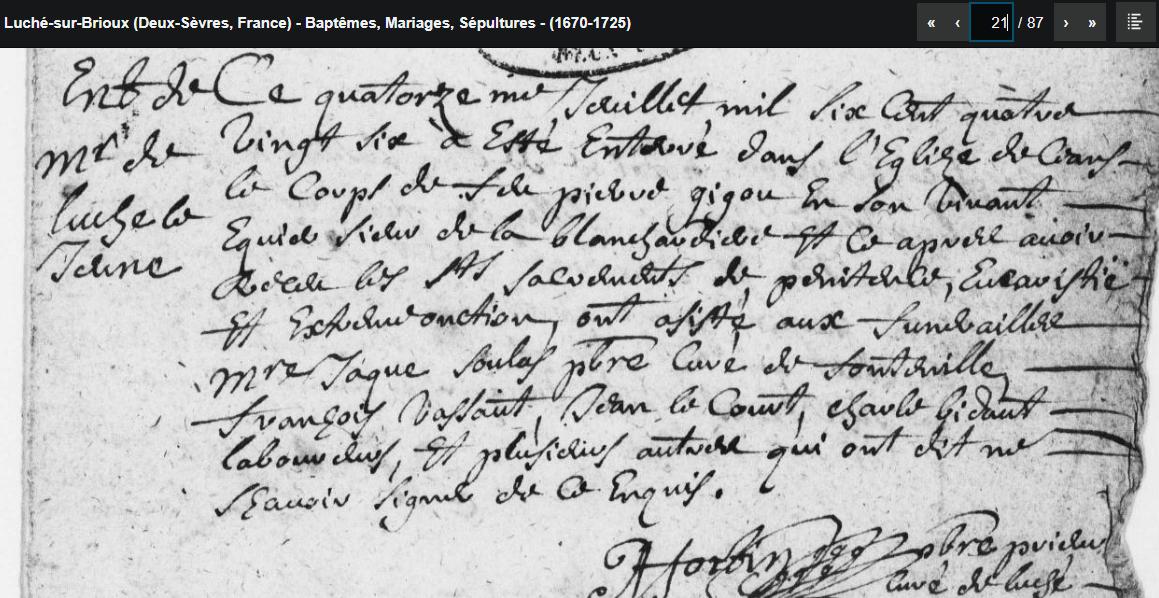 Luché-sur-Brioux (Deux-Sèvres, France) - Baptêmes, Mariages, Sépultures - (1670-1725)
« ‹ 21 / 87 › »
Ent de
Mr de
luche le
Jeune
Ce quatorze me Jeuillet mil six Cent quatre
vingt six a Esté Enterré dans l'Eglize de Ceans
le Corps de feu pierre gigou En son vivant
Equier sieur de la blanchardiere Et Ce apres avoir
Receu les Sts sacrements de penitence, Eucaristie
Et Extreme onction, ont asisté aux funerailles
Mre Jaque soulas pbre Curé de fontenille
françois vassaut, Jean le Court, charle bidaut
laboureurs, Et plusieurs autres qui ont dit ne
sçavoir signer de Ce Enquis.
pbre prieur
Curé de luché